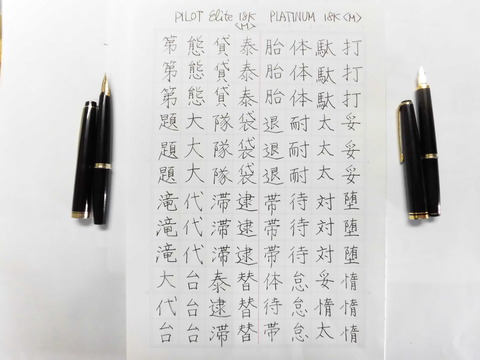 PILOT Elite 18K <M>
PLATINUM 18K <M>
打打打妥妥妥堕堕堕惰惰惰
駄駄駄太太太対対対妥惰太
体体体耐耐耐待待待怠怠怠
胎胎胎退退退帯帯帯体待帯
泰泰泰袋袋袋逮逮逮替替替
貸貸貸隊隊隊滞滞滞泰逮滞
態態態大大大代代代台台台
第第第題題題滝滝滝大代台